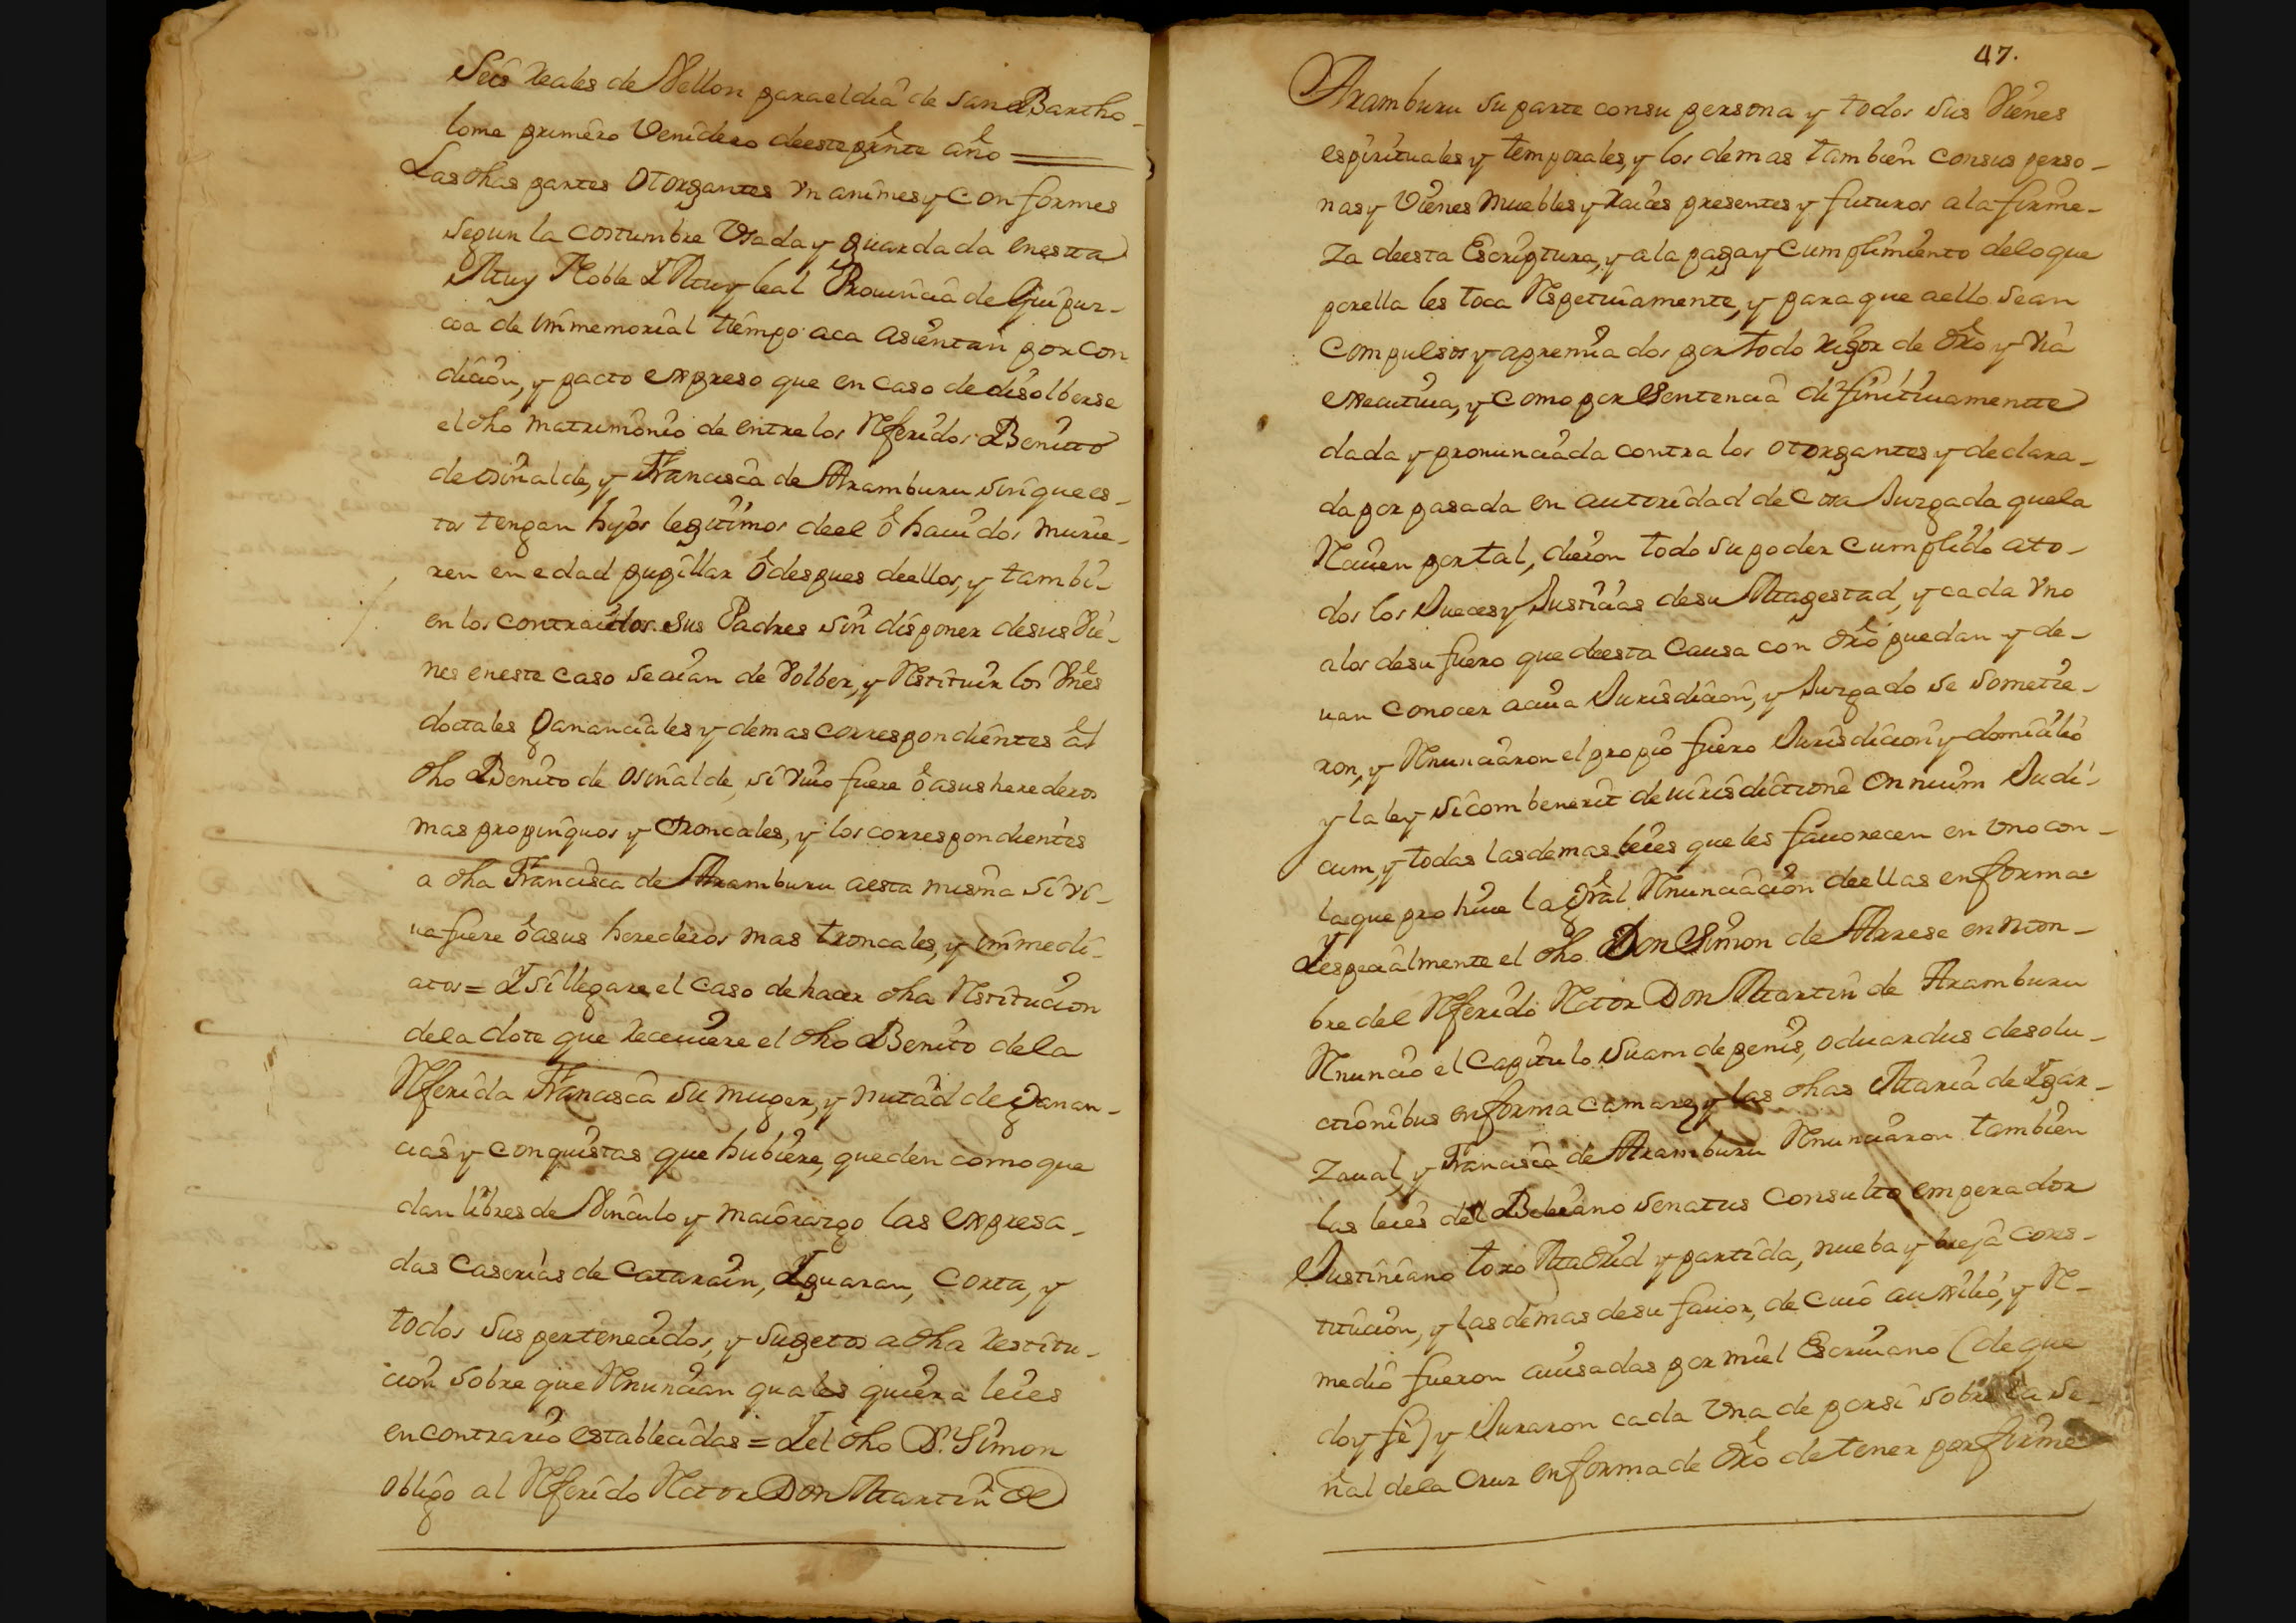 Seis reales de Vellon para el dia de San Bartho-
lome primero Venidero de este press.te año
Las dhas partes otorgantes Vnanimes y conformes
segun la costumbre Vsada y guardada en estta
Muy Noble Y Muy leal Prouincia de Guipuz-
coa de immemorial tiempo aca asientan por con
dicion, y pacto expreso que en caso de disolberse
el dho matrimonio de entre los Referidos Benitto
de osinalde, y Francisca de Aramburu sin que es-
tos tengan hijos legitimos de el ó hauidos murie-
ren en edad pupillar ó despues de ellos, y tambi-
en los contraidos sus Padres sin disponer de sus Vie-
nes en este caso se aian de Volber, y Restituir los Vnes
doctales Gananciales y demas correspondientes al
dho Benito de osinalde, si viuo fuere ó a sus herederos
mas propinquos y troncales, y los correspondientes
a dha Francisca de Aramburu a esta misma si vi-
ua fuere ó a sus herederos mas troncales, y immedi-
atos = Y si llegare el caso de hacer dha Restitucion
de la dote que receuiere el dho Benito de la
Referida Francisca su muger, y mitad de Ganan-
cias y conquistas que hubiere, queden como que
dan libres de Vinculo y maiorazgo las expresa-
das Caserias de Catarain, Yguaran, Corta, y
todos sus pertenecidos, y sugetos a dha restitu-
cion sobre que Renuncian quales quiera leies
en contrario establecidas = Y el dho D.n Simon
obligo al Referido Retor Don Martin de
47.
Aramburu su parte con su persona y todos sus Vienes
espirituales y temporales, y los demas tambien con sus perso-
nas y Vienes muebles y raices presentes y futuros a la firme-
za de esta Escriptura, y a la paga y cumplimiento de lo que
por ella les toca Respetiuamente, y para que a ello sean
compulsos y apremiados por todo rigor de dro y via
executiua, y como por Sentencia difinitiuamentte
dada y pronunciada contra los otorgantes y declara-
da por pasada en autoridad de Cosa Juzgada que la
Rauen por tal, dieron todo su poder cumplido a to-
dos los Jueces y Justicias de su Magestad, y cada Vno
a los de su fuero que de esta Causa con dro puedan y de-
uan conocer a cuia Jurisdicion, y Juzgado se sometie-
ron, y Renunciaron el propio fuero Jurisdicion y domicilio
y la ley si combenerit de iurisdictione onnium Judi-
cum, y todas las demas leies que les fauorecen en vno con
la que prohiue la gral Renunciacion de ellas en forma =
Y especialmente el dho Don Simon de Arrese en nom-
bre del Referido Retor Don Martin de Aramburu
Renuncio el Capitulo Suam de penis, oduardus de solu-
ctionibus en forma camare, y las dhas Maria de Ygar-
zaual, y Francisca de Aramburu Renunciaron tambien
las leies del Beleiano Senatus Consulto emperador
Justiniano toro Madrid y partida, nueba y bieja cons-
titucion, y las demas de su fauor, de cuio auxilio, y Re-
medio fueron auisadas por mi el Escriuano (de que
doy fe) y Juraron cada Vna de por si sobre la se-
ñal de la Cruz en forma de dro de tener por firme